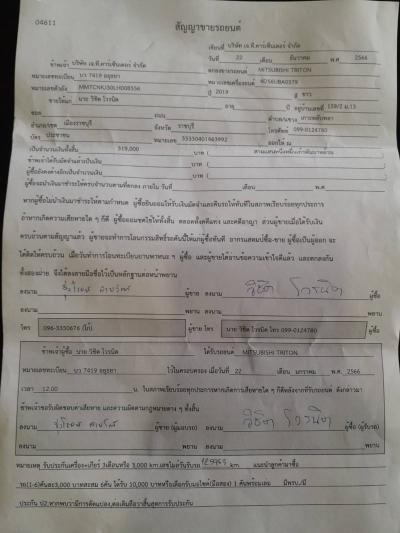 04611
สัญญาขายรถยนต์
เขียนที่ บริษัท เจ.ที.คาร์เซ็นเตอร์ จำกัด
วันที่ 22 เดือน ธันวาคม พ.ศ. 2566
ข้าพเจ้า บริษัท เจ.ที.คาร์เซ็นเตอร์ จำกัด ตกลงขายรถยนต์ MITSUBISHI TRITON
หมายเลขทะเบียน บว 7419 อยุธยา หมายเลขเครื่องยนต์ 4D56UBA0379
หมายเลขตัวถัง ปี 2019 สี ขาว
ขายให้แก่ นาย วิชิต ไวรนิต อายุ ปี อยู่บ้านเลขที่ 159/2 ม.13
ซอย ถนน ตำบล/แขวง เกาะพลับพลา
อำเภอ/เขต เมืองราชบุรี จังหวัด ราชบุรี โทรศัพท์ 099-0124780
บัตร ประชาชน หมายเลข ออกให้ ณ
เป็นจำนวนเงินทั้งสิ้น 519,000 บาท (
ข้าพเจ้าได้รับมัดจำแล้วเป็นเงิน บาท (
ผู้ซื้อยังคงค้างอีกเป็นจำนวนเงิน บาท (
ผู้ซื้อจะนำเงินมาชำระให้ครบจำนวนตามที่ตกลง ภายใน วันที่ เดือน พ.ศ.
หากผู้ซื้อไม่นำเงินมาชำระให้ตามกำหนด ผู้ซื้อยินยอมให้ริบเงินมัดจำและคืนรถให้ทันทีในสภาพเรียบร้อยทุกประการ
ถ้าหากเกิดความเสียหายใด ๆ ก็ดี ผู้ซื้อยอมชดใช้ให้ทั้งสิ้น ตลอดทั้งคดีแพ่ง และคดีอาญา ส่วนผู้ขายเมื่อได้รับเงิน
ครบถ้วนตามสัญญาแล้ว ผู้ขายจะทำการโอนกรรมสิทธิ์รถคันนี้ให้แก่ผู้ซื้อทันที อากรแสตมป์ซื้อ-ขาย ผู้ซื้อเป็นผู้ออก จะ
ได้คิดให้ครบถ้วน เมื่อวันทำการโอนทะเบียนยานพาหนะ ๆ ผู้ซื้อ และผู้ขายได้อ่านข้อความเข้าใจดีแล้ว และตกลงกัน
ทั้งสองฝ่าย จึงได้ลงลายมือชื่อไว้เป็นหลักฐานต่อหน้าพยาน
ลงนาม ผู้ขาย ลงนาม ผู้ซื้อ
ลงนาม พยาน ลงนาม พยาน
โทร 096-3350676 (โก้) ผู้ขาย โทร นาย วิชิต ไวรนิต โทร 099-0124780 ผู้ซื้อ
ข้าพเจ้าผู้ซื้อ นาย วิชิต ไวรนิต ได้รับรถยนต์ MITSUBISHI TRITON
หมายเลขทะเบียน บว 7419 อยุธยา ไว้ในครอบครอง เมื่อวันที่ 22 เดือน มกราคม พ.ศ. 2566
เวลา 12.00 น. ในสภาพเรียบร้อยทุกประการหากเกิดการเสียหายใด ๆ ก็ดีหลังจากที่รับรถยนต์ ดังกล่าวมา
ข้าพเจ้าขอรับผิดชอบค่าเสียหาย และความผิดตามกฎหมายต่าง ๆ ทั้งสิ้น
ลงนาม ผู้ขาย (ผู้มอบรถ) ลงนาม ผู้ซื้อ (ผู้รับรถ)
ลงนาม พยาน ลงนาม พยาน
หมายเหตุ รับประกันเครื่อง+เกียร์ 3เดือนหรือ 3,000 km. km แนะนำลูกค้ามาซื้อ
รถ(1-6)คันละ3,000 บาทสะสม 6คัน ได้รับ 10,000 บาทหรือเลือกรับมอไซค์(มือสอง) 1 คันพร้อมเล่ม